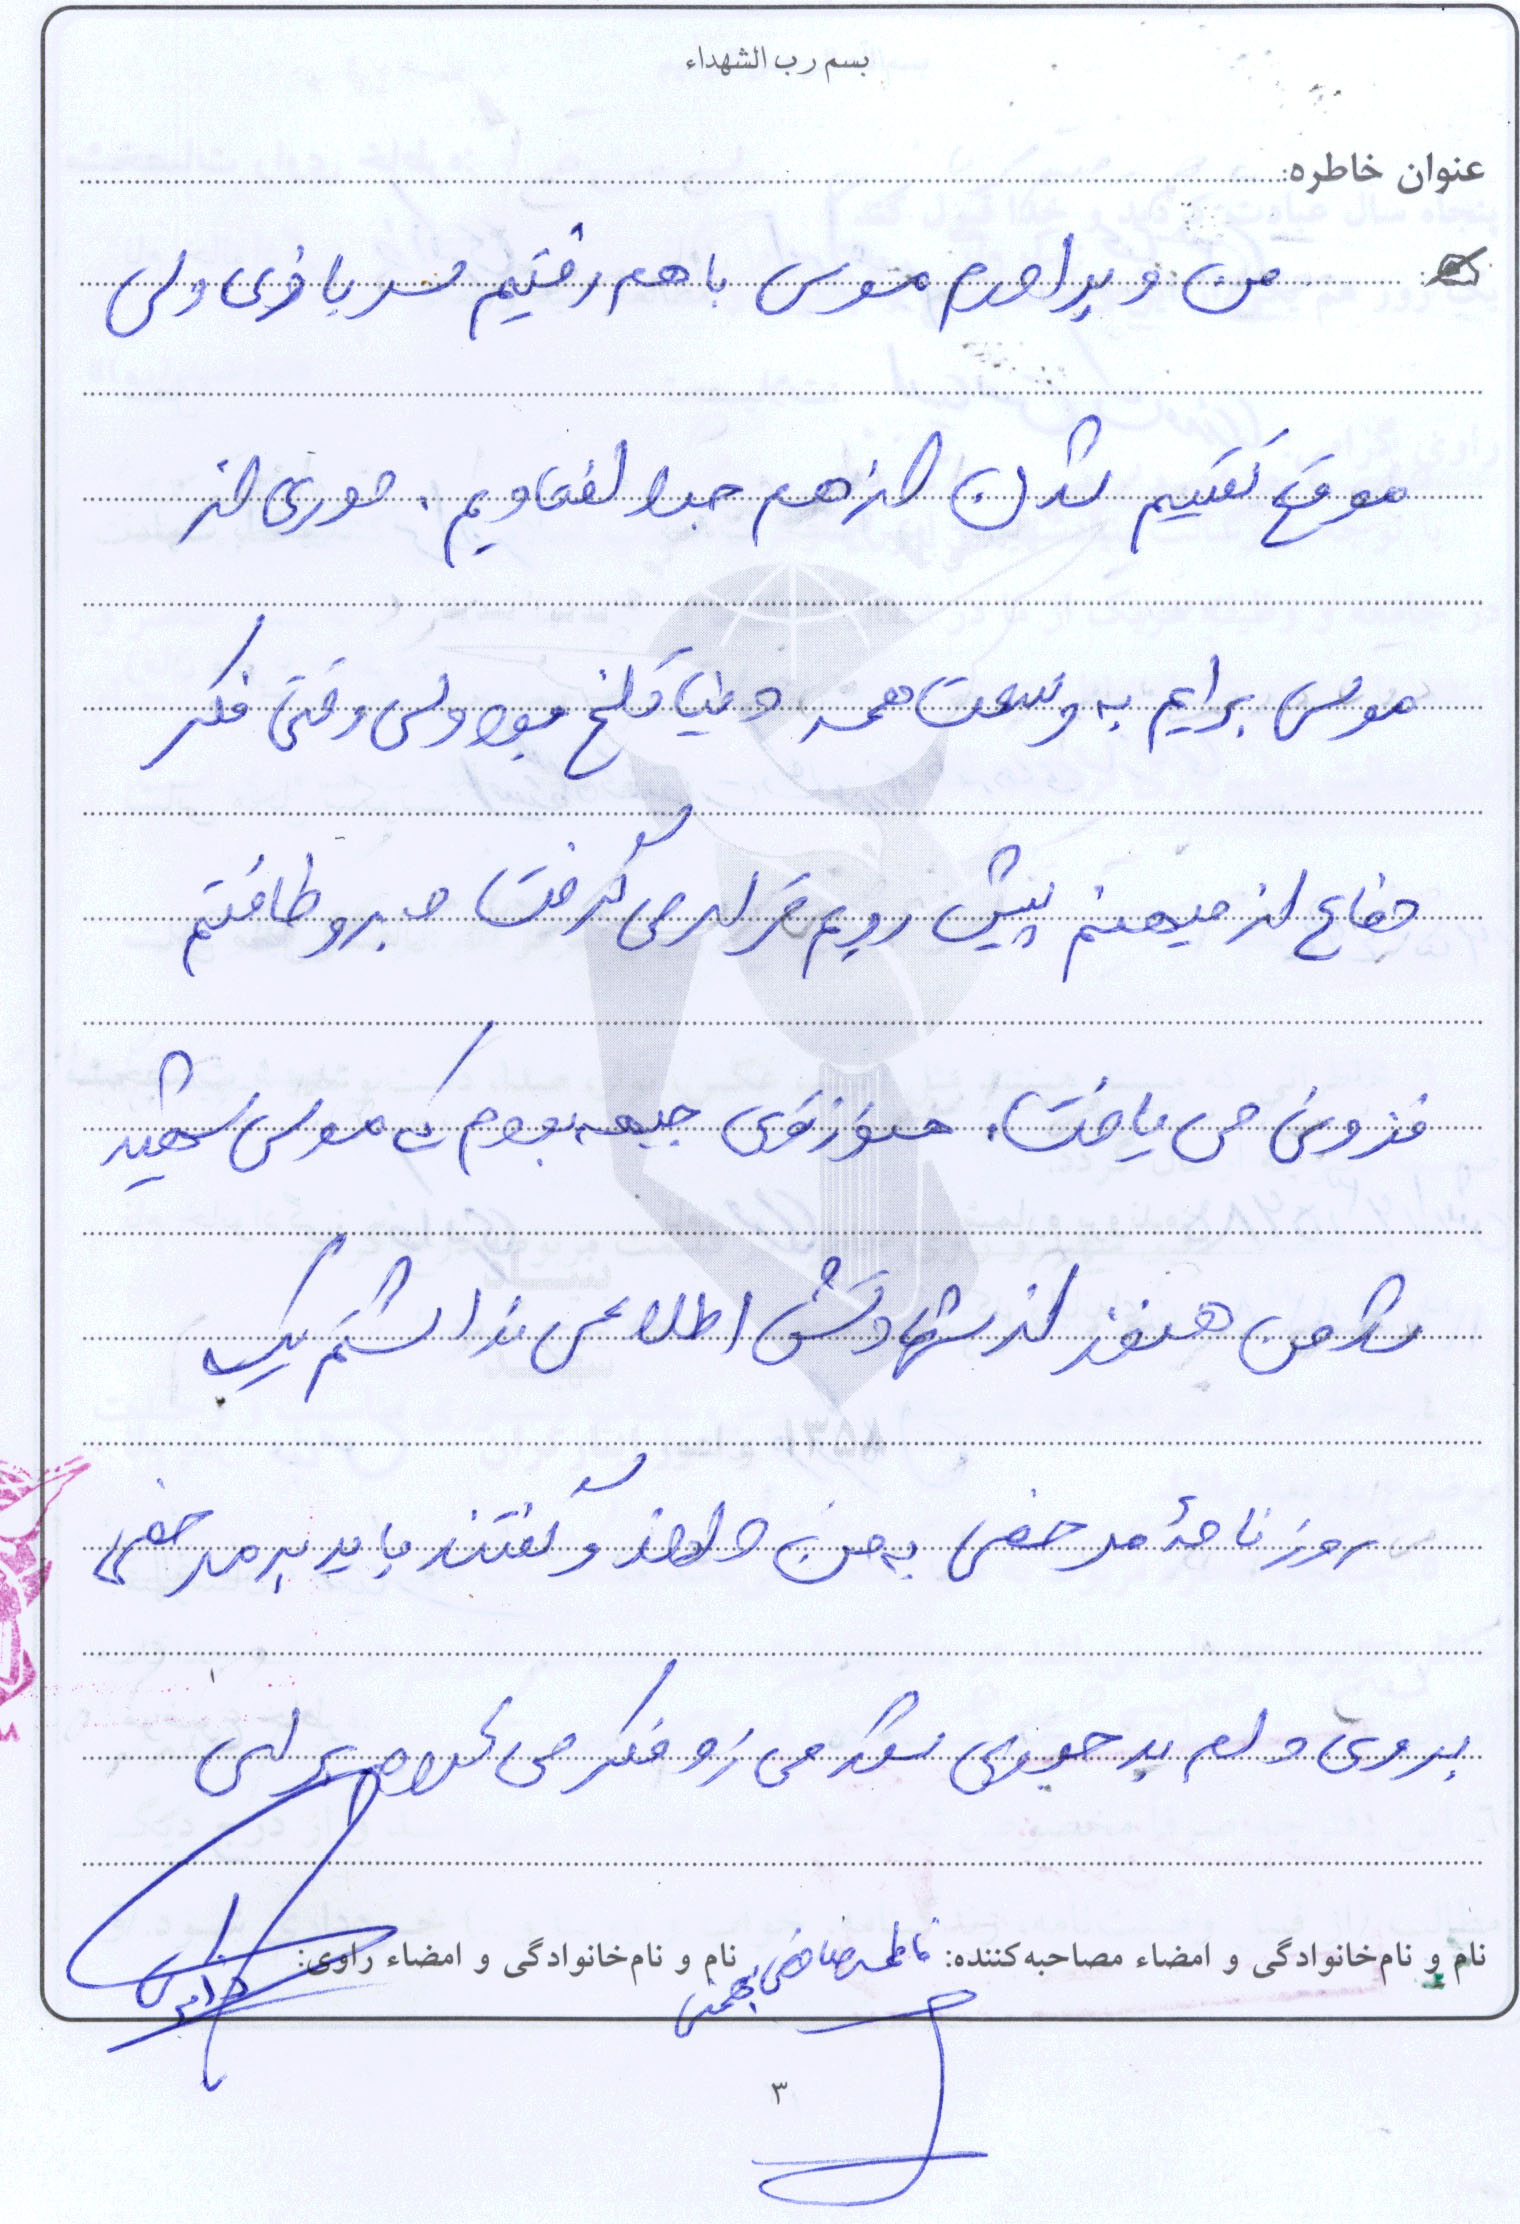 بسم رب الشهداء
عنوان خاطره:
من و برادرم موسی با هم رفتیم سربازی ولی
موقع تقسیم شدن از هم جدا افتادیم. دوری از
موسی برایم به وسعت همه دنیا تلخ بود ولی وقتی فکر
دفاع از میهنم پیش رویم قرار می گرفت صبر و طاقتم
فزونی می یافت. هنوز توی جبهه بودم که موسی شهید
شد من هنوز از شهادتش اطلاعی نداشتم یک
روز نامهٔ مرخصی به من دادند و گفتند باید به مرخصی
بروی دلم بد جوری شور می زد فکر می کردم برای
نام و نام‌خانوادگی و امضاء مصاحبه‌کننده: فاطمه رضایی بهمنی نام و نام‌خانوادگی و امضاء راوی:
۳